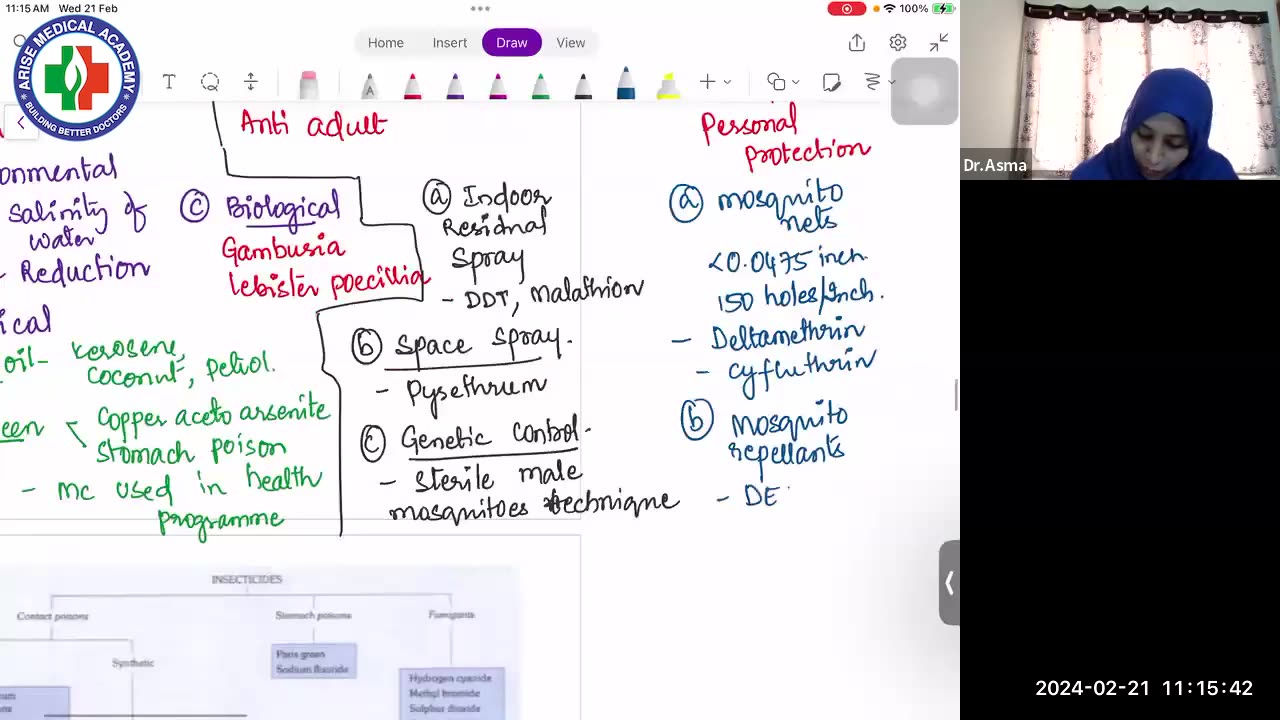 11:15 AM Wed 21 Feb
100%
ARISE MEDICAL ACADEMY
BUILDING BETTER DOCTORS
Home Insert Draw View
Anti adult
Personal
protection
onmental
Salinity of
water
- Reduction
ical
oil- Kerosene,
coconut, petrol.
een
Copper aceto arsenite
Stomach poison
- mc used in health
programme
(c) Biological
Gambusia
lebister poecillia
(a) Indoor
Residual
Spray
- DDT, Malathion
(b) Space Spray.
- Pyrethrum
(c) Genetic Control-
- Sterile male
mosquitoes technique
(a) mosquito
nets
<0.0475 inch.
150 holes/inch.
- Deltamethrin
- cyfluthrin
(b) Mosquito
repellants
- DE
INSECTICIDES
Contact poisons Stomach poisons Fumigants
Synthetic
Paris green
Sodium fluoride
Hydrogen cyanide
Methyl bromide
Sulphur dioxide
Dr.Asma
2024-02-21 11:15:42